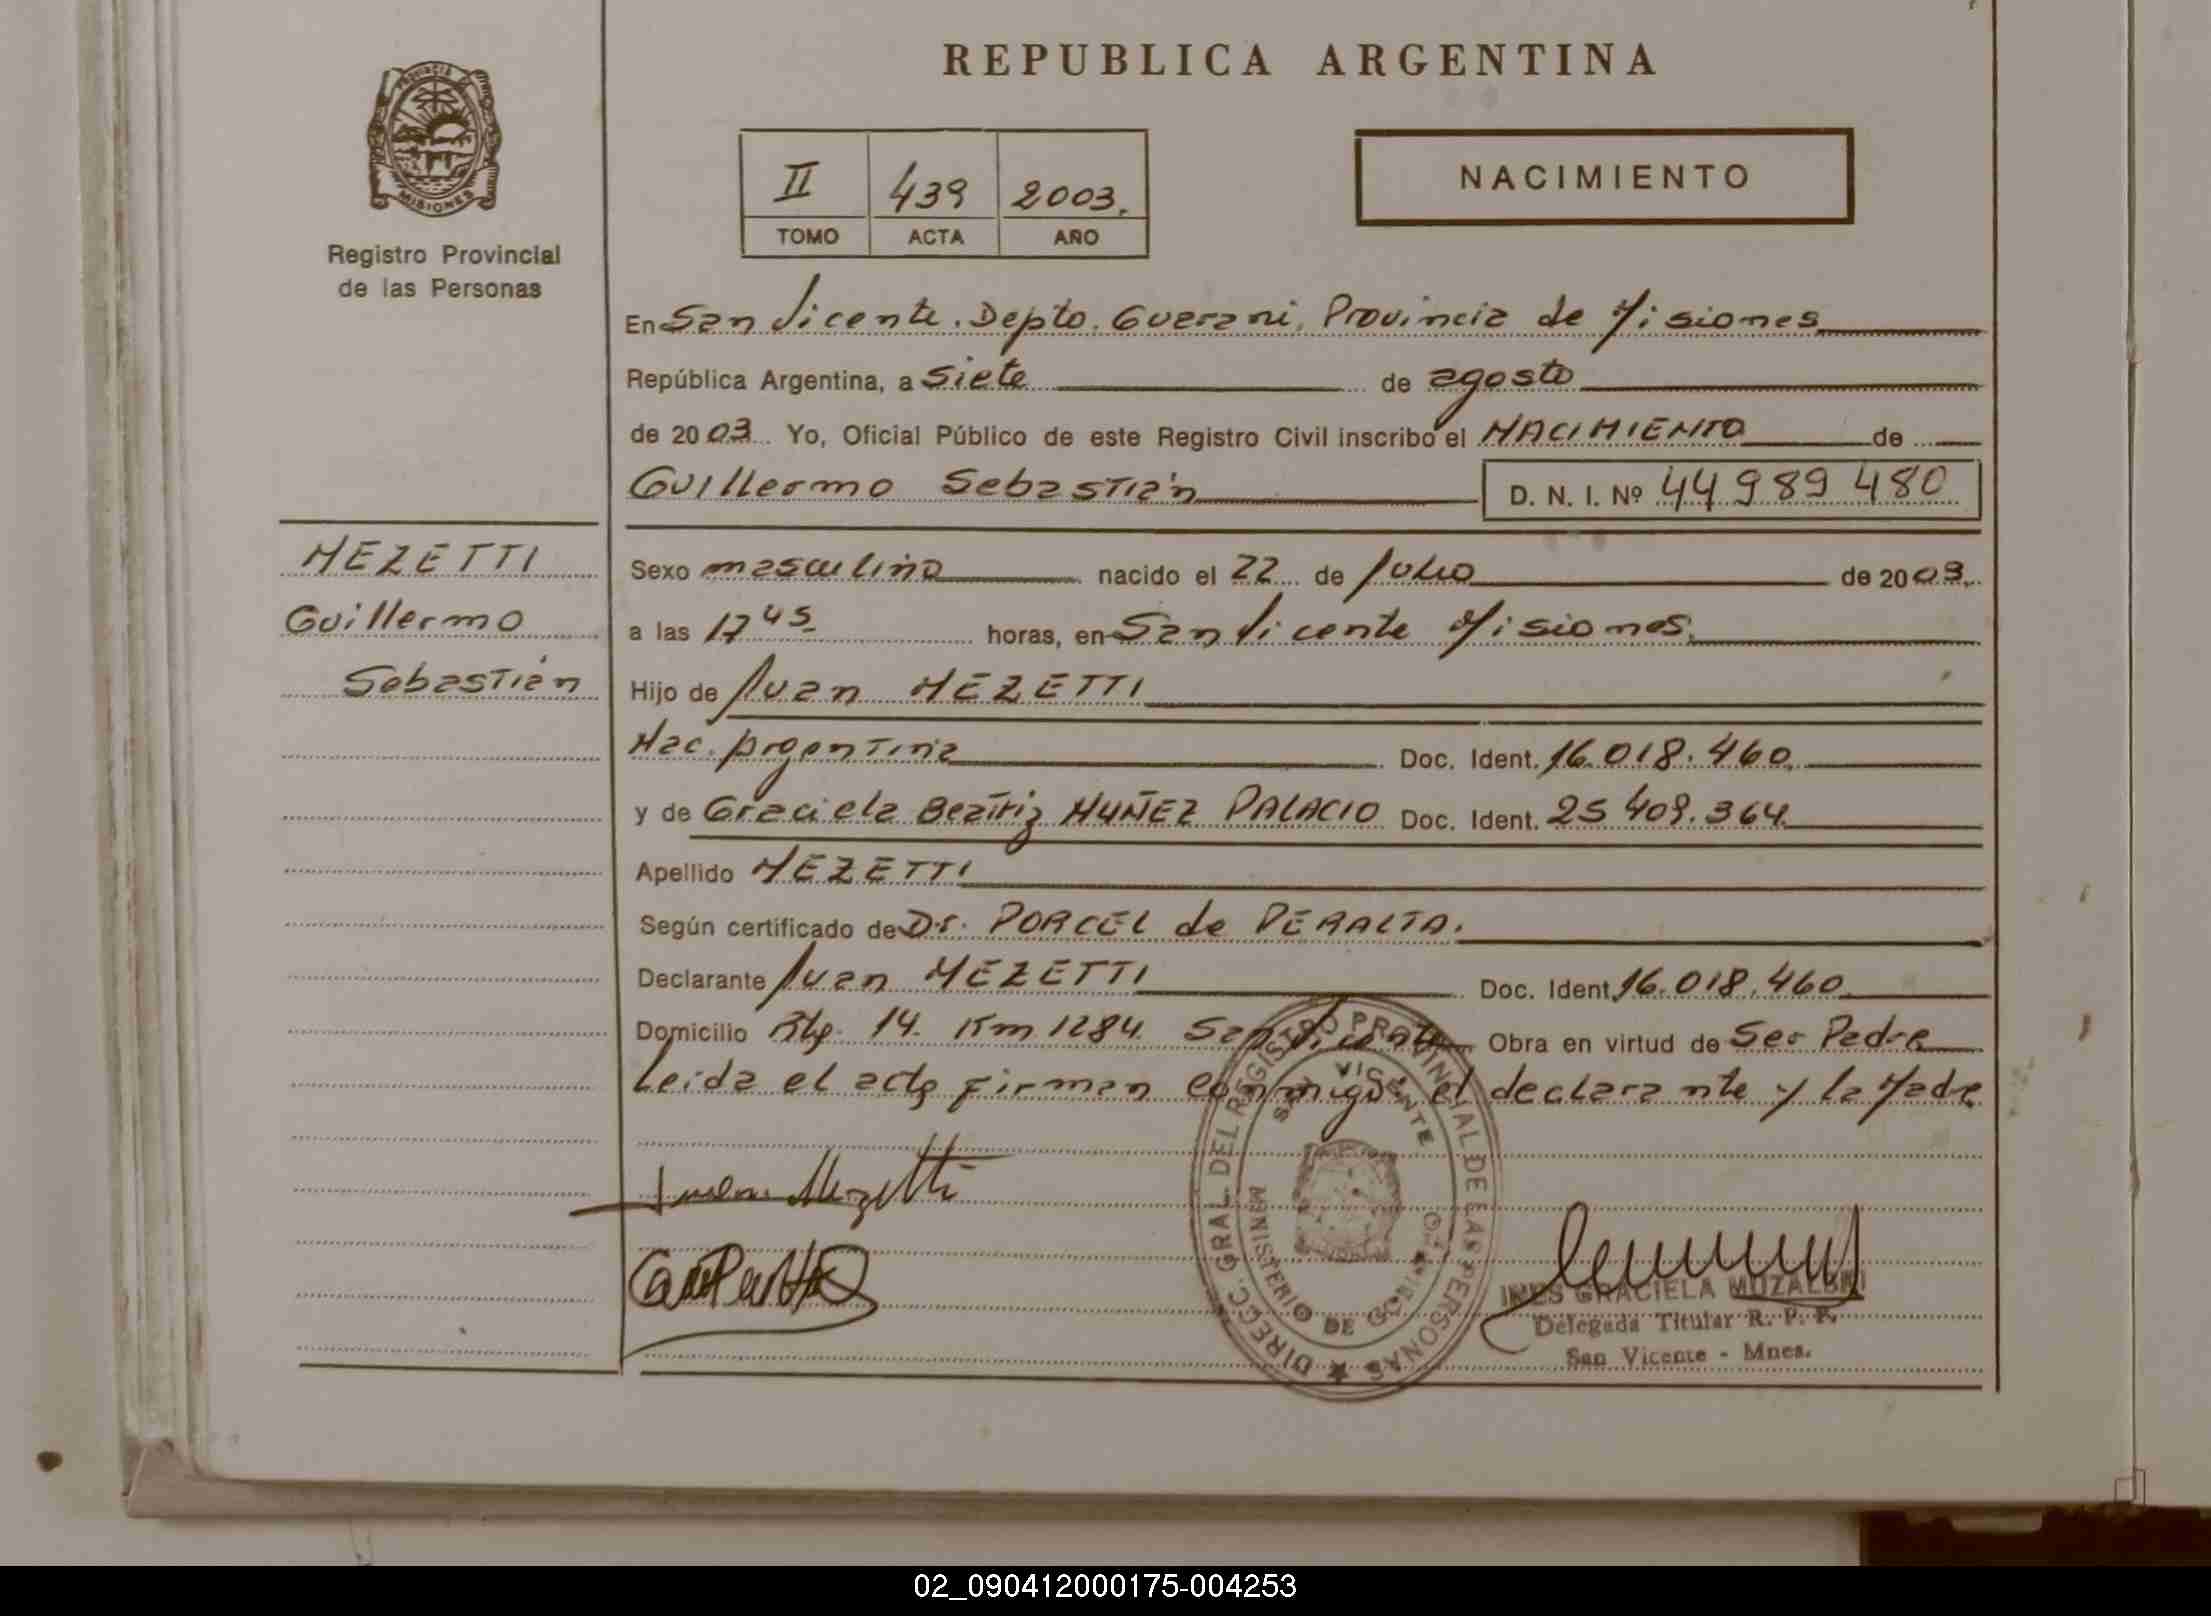 REPUBLICA ARGENTINA
PROVINCIA DE
MISIONES
Registro Provincial
de las Personas
II 439 2003.
TOMO ACTA AÑO
NACIMIENTO
En San Vicente. Depto. Guarani, Provincia de Misiones
República Argentina, a siete de agosto
de 2003 Yo, Oficial Público de este Registro Civil inscribo el NACIMIENTO de
Guillermo Sebastián D. N. I. Nº 44 989 480
MEZETTI
Guillermo
Sebastián
Sexo masculino nacido el 22 de Julio de 2003.
a las 17 45 horas, en San Vicente Misiones.
Hijo de Juan MEZETTI
Nac. Argentina Doc. Ident. 16.018.460
y de Graciela Beatriz NUÑEZ PALACIO Doc. Ident. 25 409.364
Apellido MEZETTI
Según certificado de Dr. PORCEL de PERALTA.
Declarante Juan MEZETTI Doc. Ident. 16.018.460
Domicilio Rta. 14. Km 1284. San Vicente Obra en virtud de Ser Padre
Leida el acta firman conmigo, el declarante y la Madre
Juan Mezetti
DIRECC. GRAL. DEL REGISTRO PROVINCIAL DE LAS PERSONAS
SAN VICENTE
MINISTERIO DE GOBIERNO
INES GRACIELA MUZALSKI
Delegada Titular R. P. P.
San Vicente - Mnes.
02_090412000175-004253